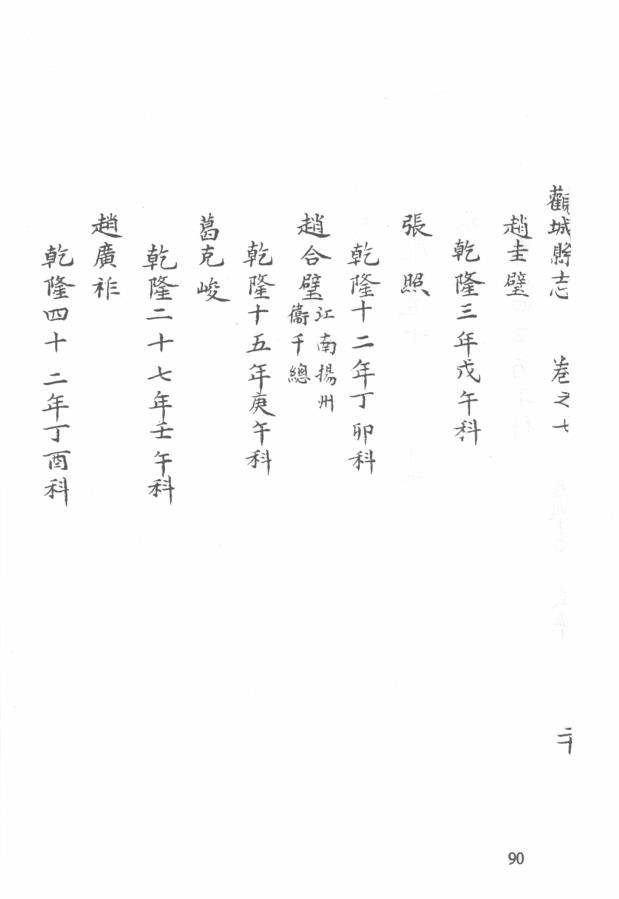 觀城縣志 卷之七 二十
趙圭璧
乾隆三年戊午科
張照
乾隆十二年丁卯科
趙合璧 江南揚州
衞千總
乾隆十五年庚午科
葛克峻
乾隆二十七年壬午科
趙廣祚
乾隆四十二年丁酉科
90